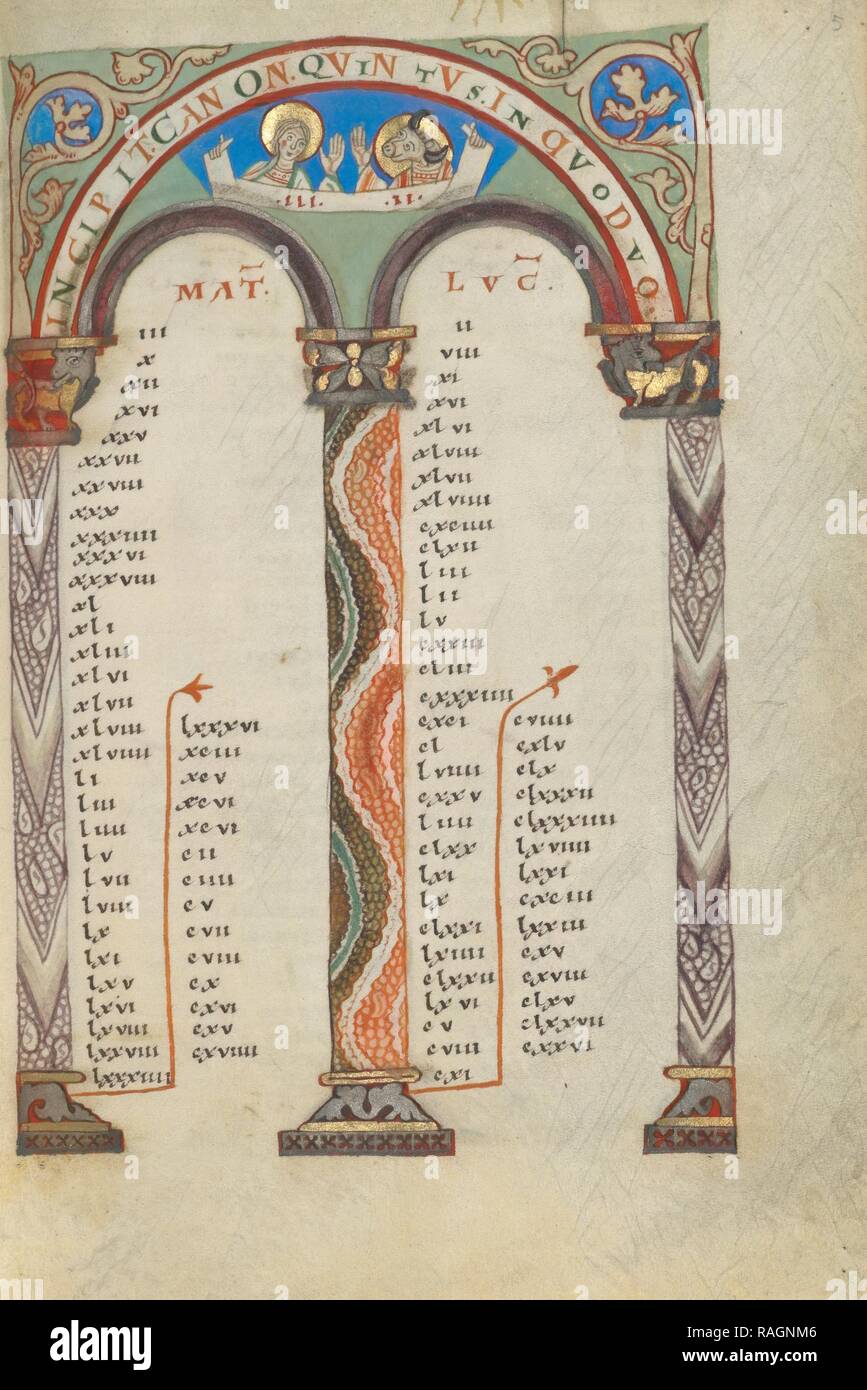 5
INCIPIT.CANON.QVINTVS.IN QVO DVO.
.III. .II.
MAT̄. LVC̄.
iii
x
xii
xvi
xxv
xxvii
xxviii
xxx
xxxiiii
xxxvi
xxxviii
xl
xli
xliii
xlvi
xlvii
xlviii
xlviiii
li
liii
liiii
lv
lvii
lviii
lx
lxi
lxv
lxvi
lxviii
lxxviii
lxxxiiii
lxxxvi
xciii
xcv
xcvi
xcvi
cii
ciiii
cv
cvii
cviii
cx
cxvi
cxv
cxviiii
ii
viii
xi
xvi
xlvi
xlviii
xlvii
xlviiii
cxciiii
clxii
liii
lii
lv
cxxiii
cliii
cxxxiiii
cxci
cl
lviiii
cxxv
liiii
clxx
lxi
lx
clxxi
lxiiii
clxxii
lxvi
cv
cviii
cxi
cviiii
cxlv
clx
clxxxii
clxxxiiii
lxviiii
lxxi
cxciii
lxxiii
cxv
cxviii
clxv
clxxvii
cxxvi
alamy
Image ID: RAGNM6
www.alamy.com